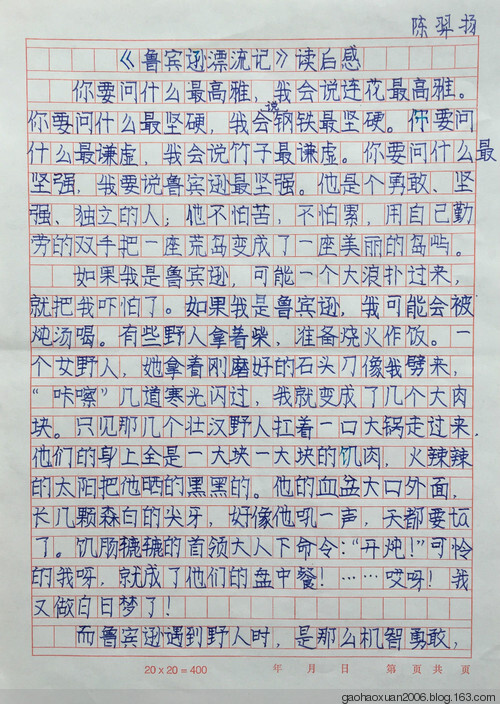 陈羿扬
《鲁宾逊漂流记》读后感
你要问什么最高雅，我会说莲花最高雅。
你要问什么最坚硬，我会说钢铁最坚硬。你要问
什么最谦虚，我会说竹子最谦虚。你要问什么最
坚强，我要说鲁宾逊最坚强。他是个勇敢、坚
强、独立的人；他不怕苦，不怕累，用自己勤
劳的双手把一座荒岛变成了一座美丽的岛屿。
如果我是鲁宾逊，可能一个大浪扑过来，
就把我吓怕了。如果我是鲁宾逊，我可能会被
炖汤喝。有些野人拿着柴，准备烧火作饭。一
个女野人，她拿着刚磨好的石头刀像我劈来，
“咔嚓”几道寒光闪过，我就变成了几个大肉
块。只见那几个壮汉野人扛着一口大锅走过来，
他们的身上全是一大块一大块的肌肉，火辣辣
的太阳把他晒的黑黑的。他的血盆大口外面，
长几颗森白的尖牙，好像他吼一声，天都要ta
了。饥肠辘辘的首领大人下命令：“开炖！”可怜
的我呀，就成了他们的盘中餐！……哎呀！我
又做白日梦了！
而鲁宾逊遇到野人时，是那么机智勇敢，
20×20=400 年 月 日 第 页 共 页
gaohaoxuan2006.blog.163.com